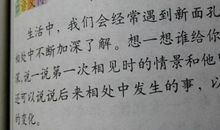 生活中，我们会经常遇到新面孔
相处中不断加深了解。想一想谁给你
深，说一说第一次相见时的情景和他
还可以说说后来相处中发生的事，以
的变化。